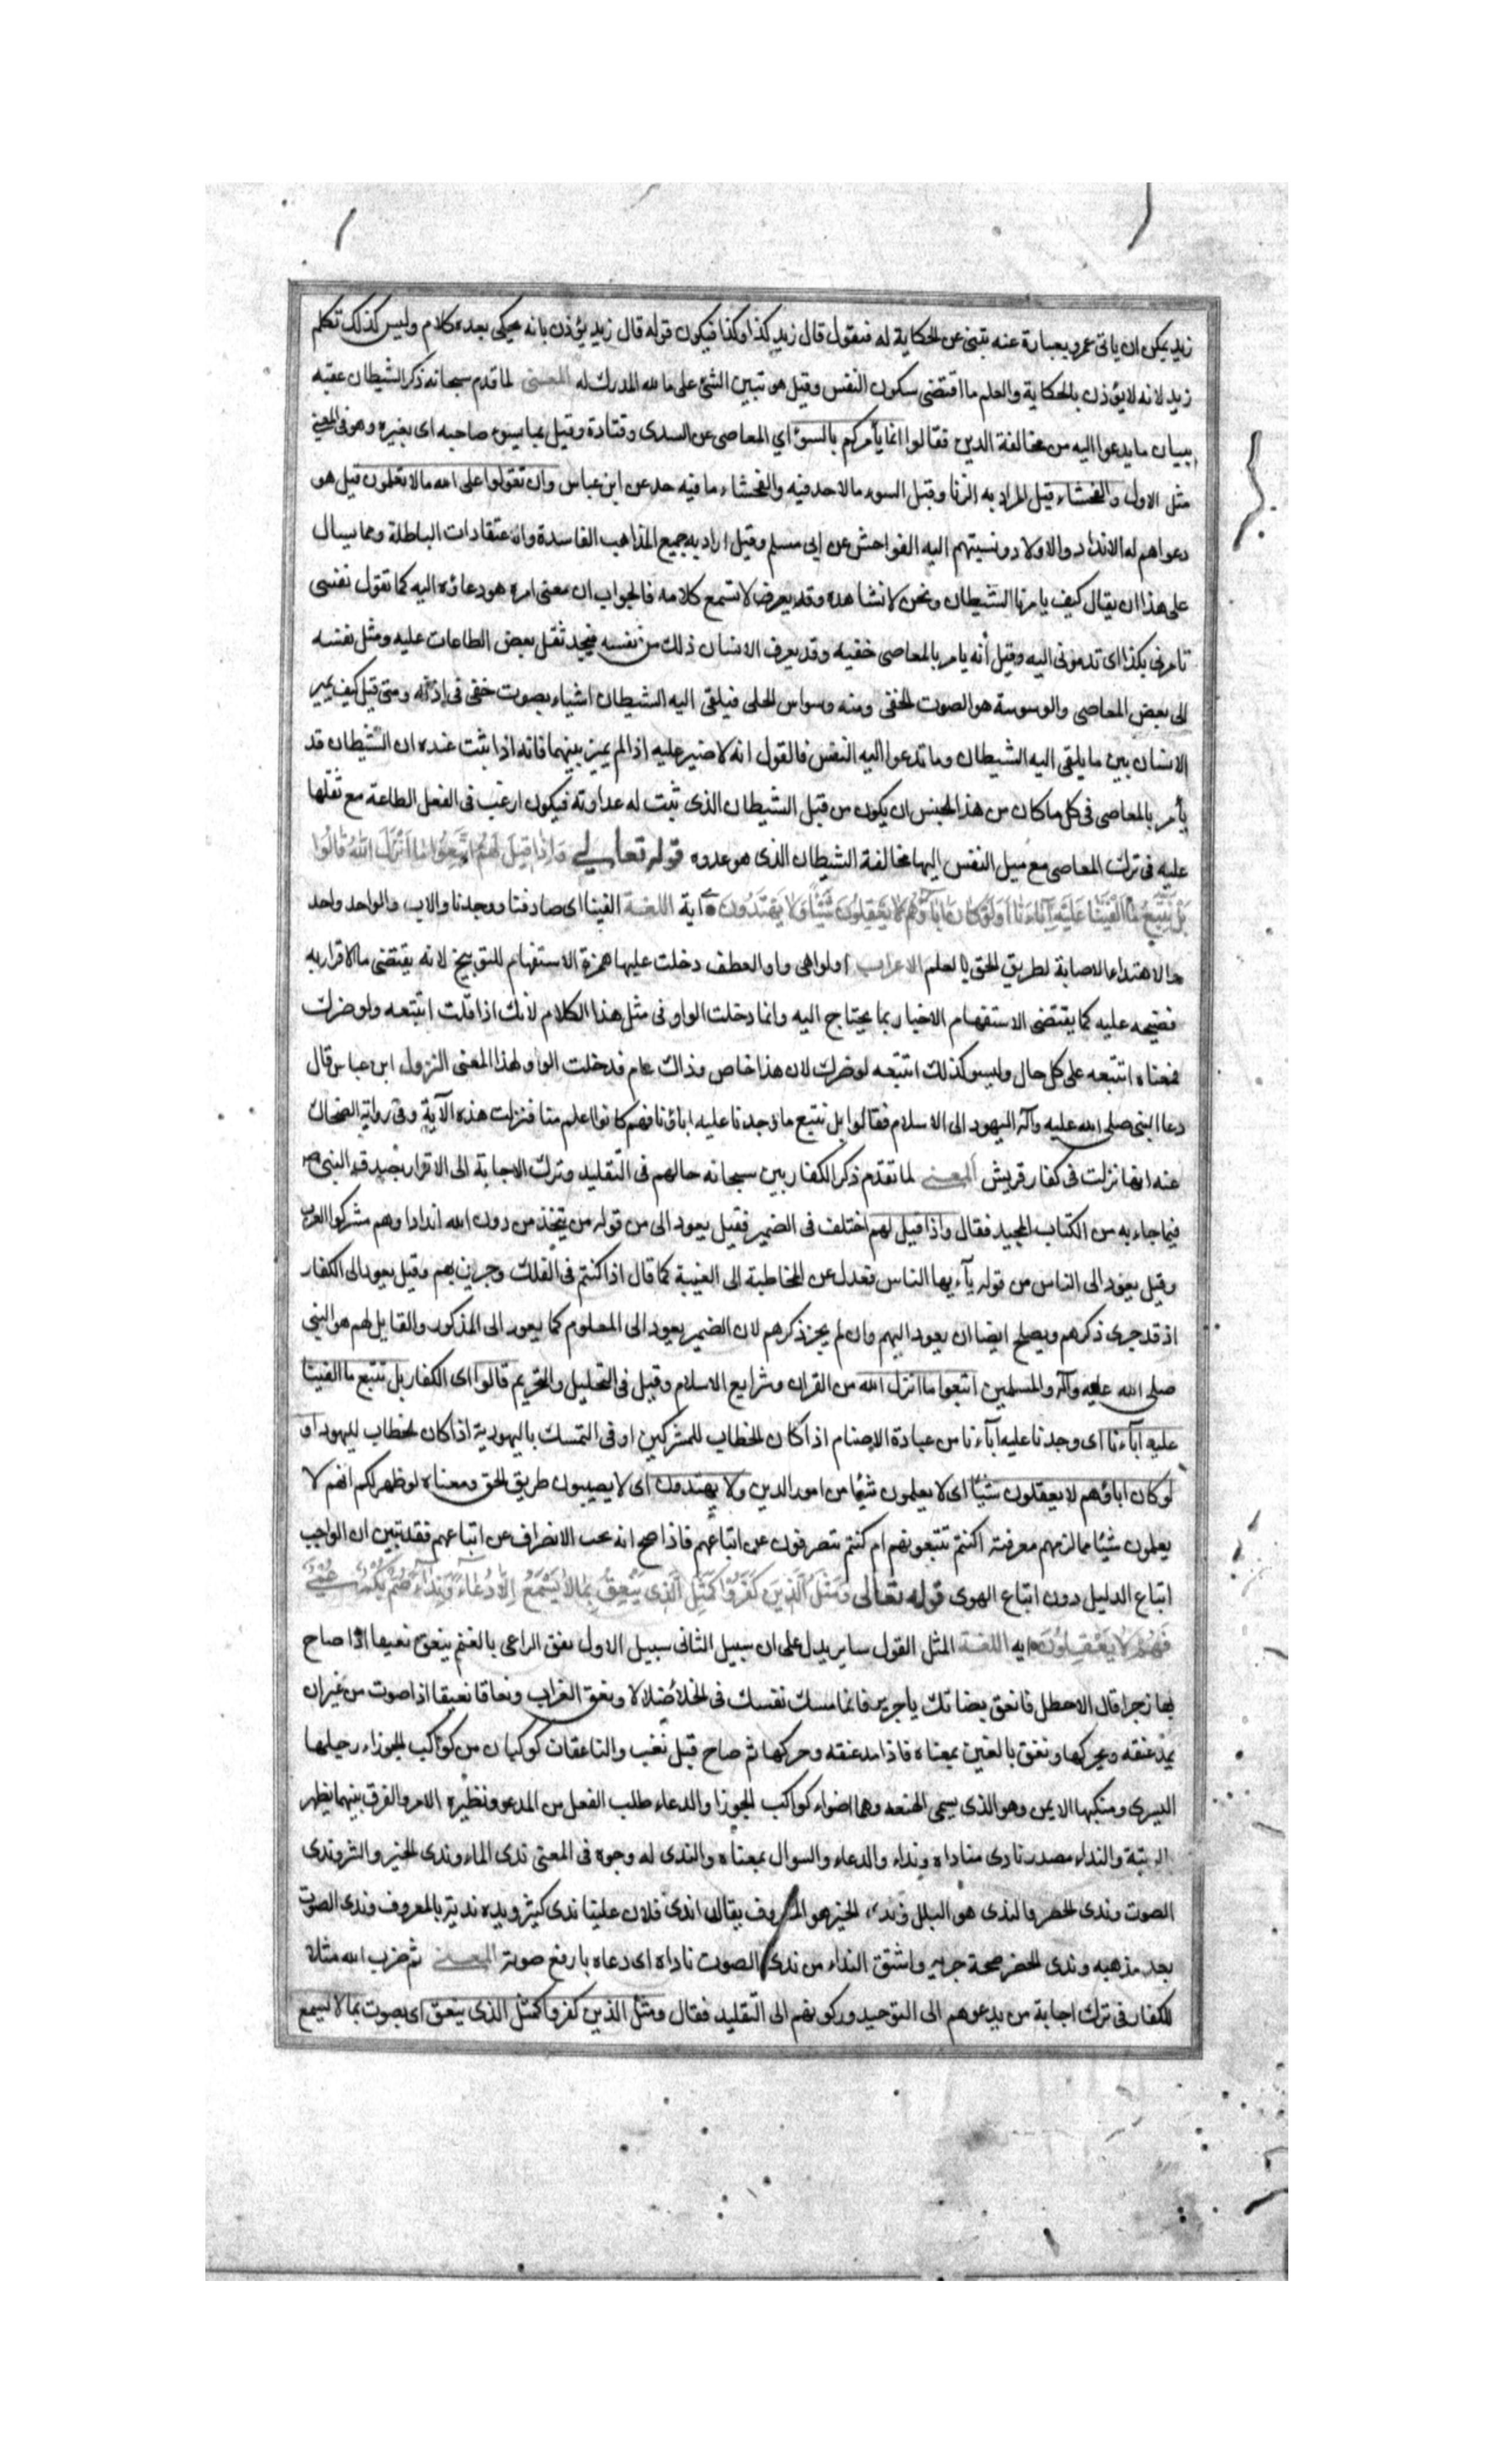 زيد يمكن ان ياتى عمرو بعبارة عنه تبنى عن الحكاية له فيقول قال زيد كذا وكذا فيكون قوله قال زيد يؤذن بانه يحكى بعده كلام وليس كذلك تكلم
زيد لانه لا يؤذن بالحكاية والعلم ما اقتضى سكون النفس وقيل هو تبين الشئ على ما به المدرك له المعنى لما قدم سبحانه ذكر الشيطان عقبه
ببيان ما يدعوا اليه من مخالفة الدين فقال انما يأمركم بالسوء اي المعاصى عن السدى وقتادة وقيل بما يسوء صاحبه اى بغيره وهو فى المعنى
مثل الاول والفحشاء قيل المراد به الزنا وقيل السوء ما لا حد فيه والفحشاء ما فيه حد عن ابن عباس وان تقولوا على الله ما لا تعلمون قيل هو
دعواهم له الانداد والاولاد ونسبتهم اليه الفواحش عن ابى مسلم وقيل اراد به جميع المذاهب الفاسدة والاعتقادات الباطلة ومما يسال
على هذا ان يقال كيف يامرنا الشيطان ونحن لا نشاهده وقد يعرض لا نسمع كلامه فالجواب ان معنى امره هو دعاؤه اليه كما تقول نفسى
تامرنى بكذا اى تدعونى اليه وقيل أنه يامر بالمعاصى خفيه وقد يعرف الانسان ذلك من نفسه فيجد ثقل بعض الطاعات عليه وميل نفسه
الى بعض المعاصى والوسوسة هو الصوت الخفى ومنه وسواس الحلى فيلقى اليه الشيطان اشياء بصوت خفى فى اذنه ومتى قيل كيف يميز
الانسان بين ما يلقى اليه الشيطان وما تدعوا اليه النفس فالقول انه لا ضير عليه اذا لم يميز بينهما فانه اذا ثبت عنده ان الشيطان قد
يأمر بالمعاصى فى كل ما كان من هذا الجنس ان يكون من قبل الشيطان الذى ثبت له عداوته فيكون ارغب فى الفعل الطاعة مع ثقلها
عليه فى ترك المعاصى مع ميل النفس اليها مخالفة الشيطان الذى هو عدوه قوله تعالى وَاِذَا قِيلَ لَهُمُ اتَّبِعُوا مَا اَنْزَلَ اللّٰهُ قَالُوا
بَلْ نَتَّبِعُ مَا اَلْفَيْنَا عَلَيْهِ اٰبَاءَنَا اَوَلَوْ كَانَ اٰبَاؤُهُمْ لَا يَعْقِلُونَ شَيْئًا وَلَا يَهْتَدُونَ اية اللغة الفينا اى صادفنا ووجدنا والاب والوالد واحد
والاهتداء الاصابة لطريق الحق بالعلم الاعراب اولو اهى واو العطف دخلت عليها همزة الاستفهام للتوبيخ لانه يقتضى ما الاقرار به
فضيحه عليه كما يقتضى الاستفهام الاخبار بما يحتاج اليه وانما دخلت الواو فى مثل هذا الكلام لأنك اذا قلت اتتبعه ولو ضرك
فمعناه اتتبعه على كل حال وليس كذلك اتتبعه لو ضرك لان هذا خاص وذاك عام فدخلت الواو لهذا المعنى النزول ابن عباس قال
دعا النبى صلى الله عليه وآله اليهود الى الاسلام فقالوا بل نتبع ما وجدنا عليه اباؤنا فهم كانوا اعلم منا فنزلت هذه الآية وفى رواية الضحاك
عنه انها نزلت فى كفار قريش المعنى لما تقدم ذكر الكفار بين سبحانه حالهم فى التقليد وترك الاجابة الى الاقرار بصدقه النبى ص
فيما جاء به من الكتاب المجيد فقال واذا قيل لهم اختلف فى الضمير فقيل يعود الى من قوله من يتخذ من دون الله اندادا وهم مشركوا العرب
وقيل يعود الى الناس من قوله يآءيها الناس فعدل عن المخاطبة الى الغيبة كما قال اذا كنتم فى الفلك وجرين بهم وقيل يعود الى الكفار
اذ قد جرى ذكرهم ويصلح ايضا ان يعود اليهم وان لم يجز ذكرهم لان الضمير يعود الى المعلوم كما يعود الى المذكور والقايل لهم هو النبى
صلى الله عليه وآله والمسلمين اتبعوا ما انزل الله من القران وشرايع الاسلام وقيل فى التحليل والتحريم قالوا اى الكفار بل نتبع ما الفينا
عليه آباءنا اى وجدنا عليه آباءنا من عبادة الاصنام اذا كان الخطاب للمشركين او فى التمسك باليهودية اذا كان الخطاب لليهود او
لو كان اباؤهم لا يعقلون شيئا اى لا يعلمون شيئا من امور الدين ولا يهتدون اى لا يصيبون طريق الحق ومعناه لو ظهر لكم انهم لا
يعلمون شيئا مما لزمهم معرفته اكنتم تتبعونهم ام كنتم تنصرفون عن اتباعهم فاذا صح انه يجب الانصراف عن اتباعهم فقد تبين ان الواجب
اتباع الدليل دون اتباع الهوى قوله تعالى وَمَثَلُ الَّذِينَ كَفَرُوا كَمَثَلِ الَّذِى يَنْعِقُ بِمَا لَا يَسْمَعُ اِلَّا دُعَاءً وَنِدَاءً صُمٌّ بُكْمٌ عُمْىٌ
فَهُمْ لَا يَعْقِلُونَ ايه اللغة المثل القول ساير يدل على ان سبيل الثانى سبيل الاول نعق الراعى بالغنم ينعق نعيقا اذا صاح
بها زجرا قال الاخطل فانعق بضانك ياجرير فانما منتك نفسك فى الخلاء ضلالا ونعق الغراب ونعاقا نعيقا اذا صوت من غير ان
يمد عنقه ويحركها ونغق بالغين بمعناه فاذا مد عنقه وحركها ثم صاح قيل نغب والناعقان كوكبان من كواكب الجوزاء رجيلها
اليسرى ومنكبها الايمن وهو الذى يسمى الهنعه وهما اضواء كواكب الجوزا والدعاء طلب الفعل من المدعو ونظيره الامر والفرق بينهما يظهر
بالرتبة والنداء مصدر نادى مناداه ونداء والدعاء والسوال بمعناه والندى له وجوه فى المعنى ندى الماء وندى الخير والشر وندى
الصوت وندى الحضر والندى هو البلل وندى الخير هو المعروف يقال اندى فلان علينا ندى كثير ويده ندية بالمعروف وندى الصوت
بعد مذهبه وندى الحضر صحة جريه واشتق النداء من ندى الصوت ناداه اى دعاه بارفع صوته المعنى ثم ضرب الله مثلا
للكفار فى ترك اجابة من يدعوهم الى التوحيد وركونهم الى التقليد فقال ومثل الذين كفروا كمثل الذى ينعق اى يصوت بما لا يسمع